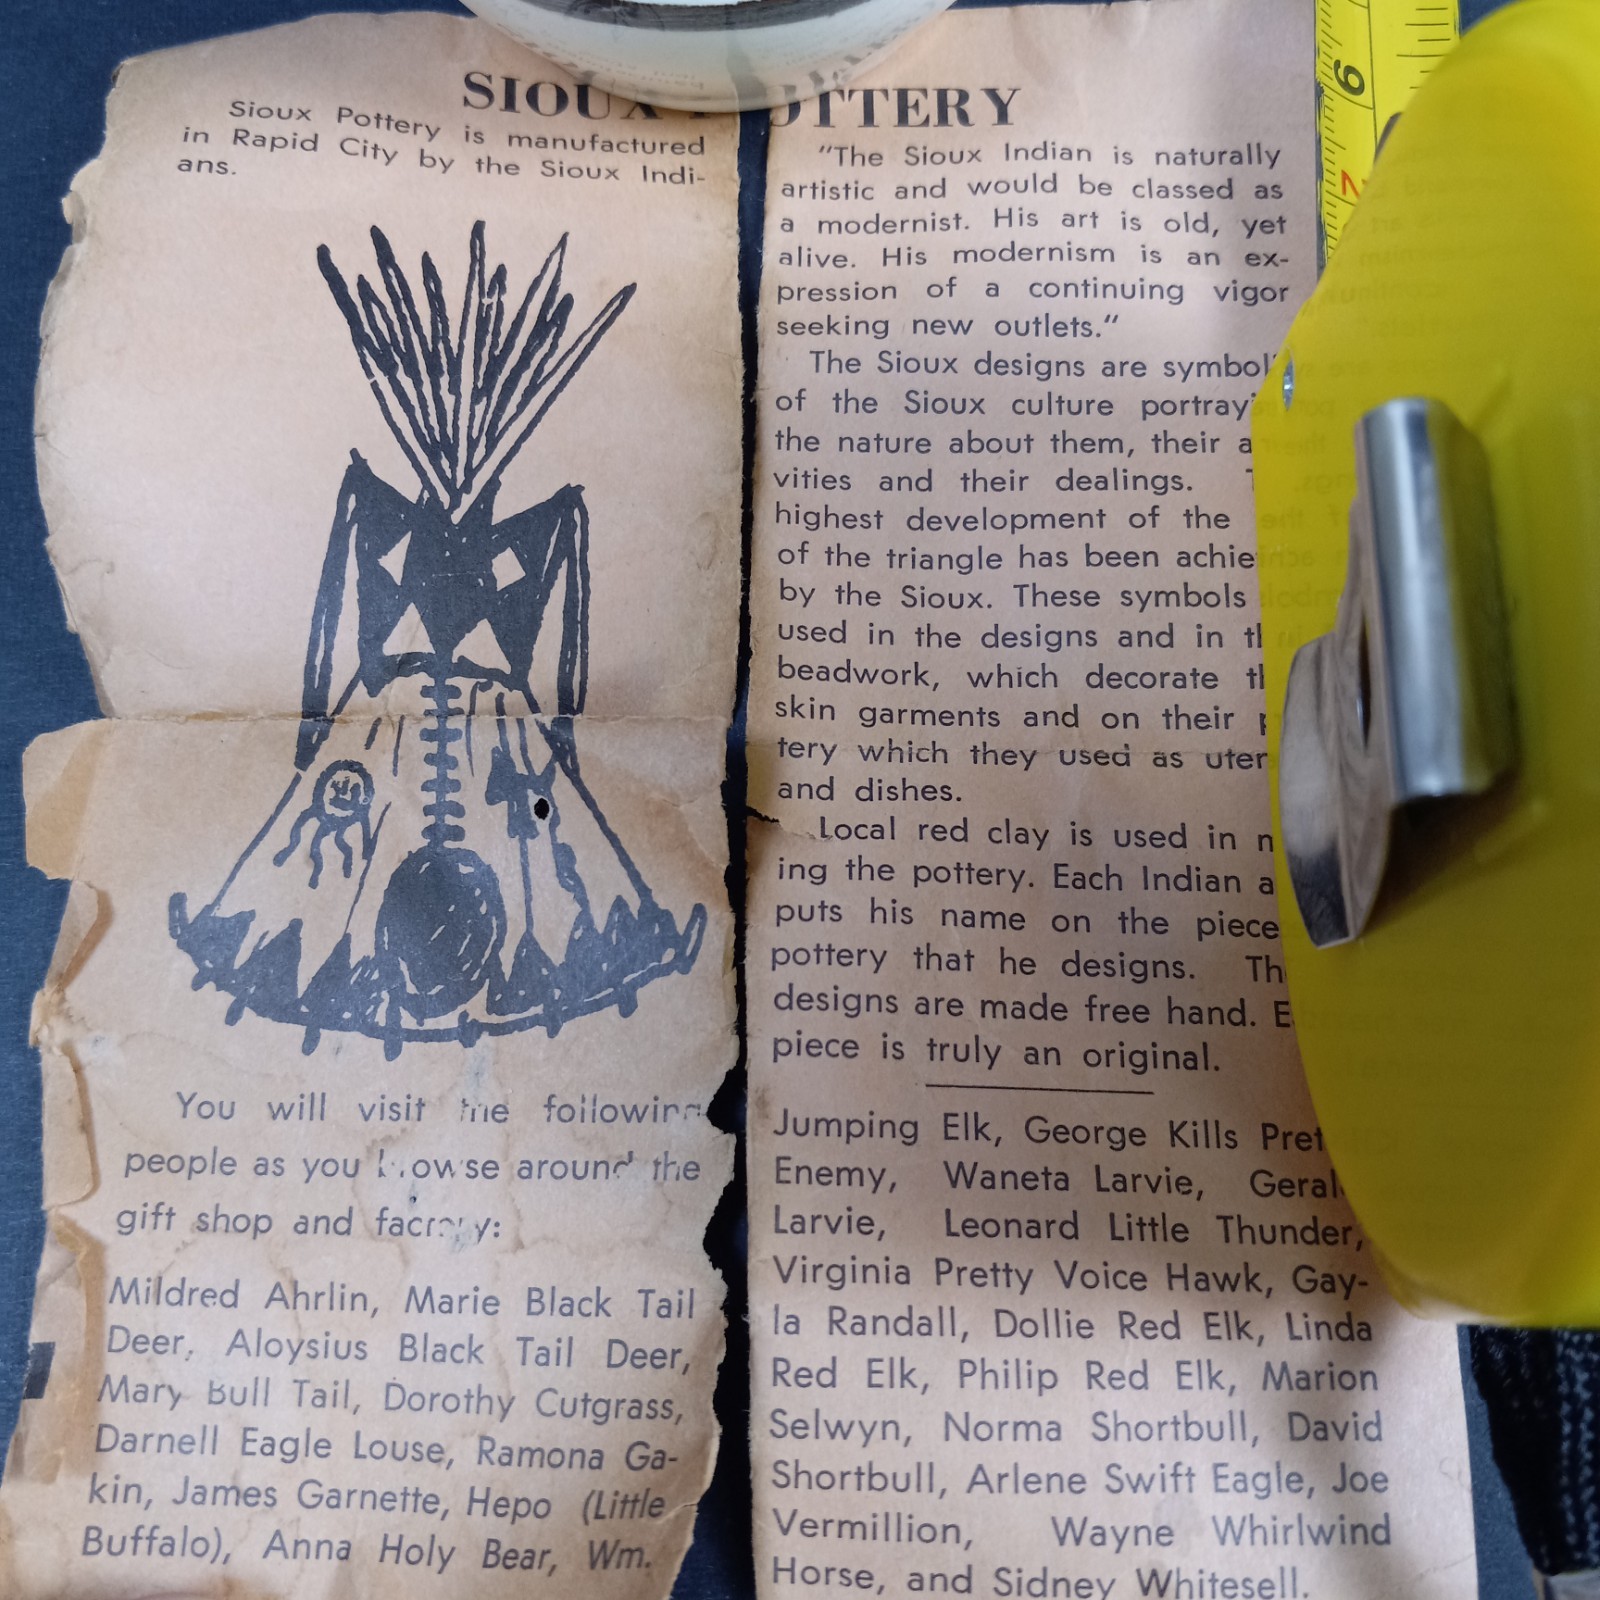 SIOUX POTTERY
Sioux Pottery is manufactured
in Rapid City by the Sioux Indi-
ans.
You will visit the following
people as you browse around the
gift shop and factory:
Mildred Ahrlin, Marie Black Tail
Deer, Aloysius Black Tail Deer,
Mary Bull Tail, Dorothy Cutgrass,
Darnell Eagle Louse, Ramona Ga-
kin, James Garnette, Hepo (Little
Buffalo), Anna Holy Bear, Wm.
"The Sioux Indian is naturally
artistic and would be classed as
a modernist. His art is old, yet
alive. His modernism is an ex-
pression of a continuing vigor
seeking new outlets."
The Sioux designs are symbol
of the Sioux culture portrayi
the nature about them, their a
vities and their dealings.
highest development of the
of the triangle has been achie
by the Sioux. These symbols
used in the designs and in th
beadwork, which decorate th
skin garments and on their p
tery which they used as uten
and dishes.
Local red clay is used in m
ing the pottery. Each Indian a
puts his name on the piece
pottery that he designs. Th
designs are made free hand. E
piece is truly an original.
Jumping Elk, George Kills Pret
Enemy, Waneta Larvie, Geral
Larvie, Leonard Little Thunder,
Virginia Pretty Voice Hawk, Gay-
la Randall, Dollie Red Elk, Linda
Red Elk, Philip Red Elk, Marion
Selwyn, Norma Shortbull, David
Shortbull, Arlene Swift Eagle, Joe
Vermillion, Wayne Whirlwind
Horse, and Sidney Whitesell.
9
2